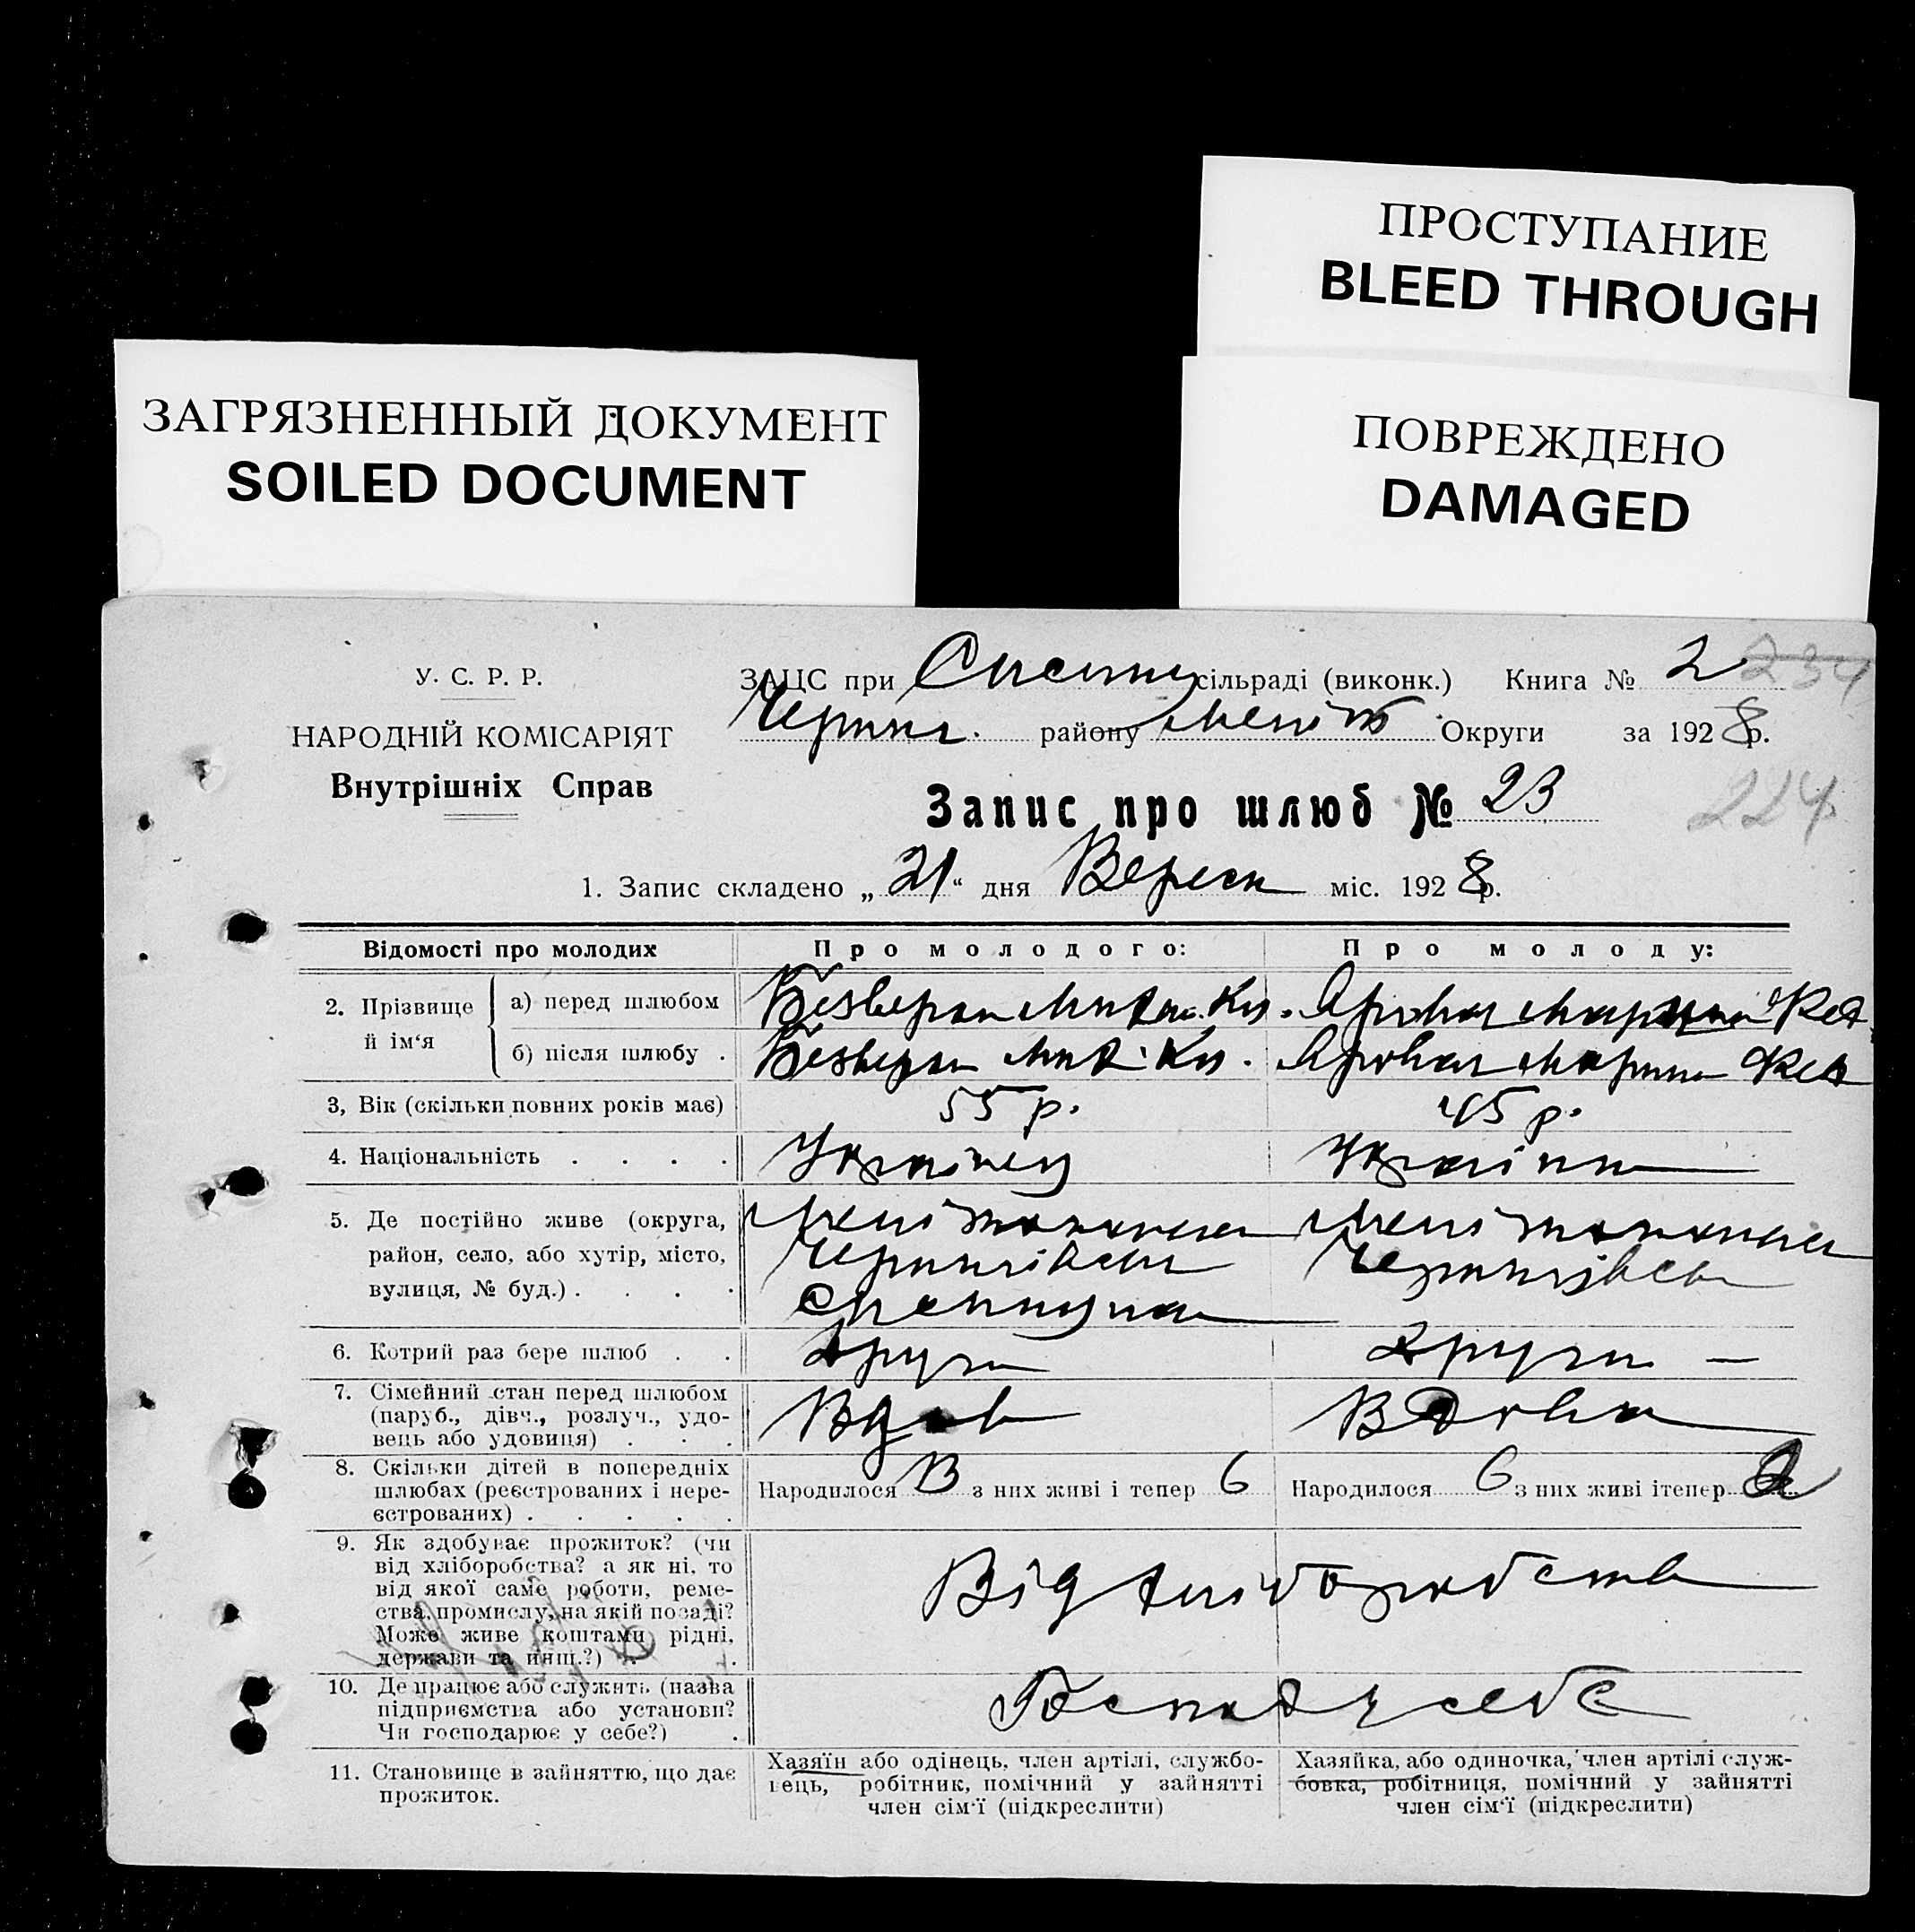 ПРОСТУПАНИЕ
BLEED THROUGH
ЗАГРЯЗНЕННЫЙ ДОКУМЕНТ
SOILED DOCUMENT
ПОВРЕЖДЕНО
DAMAGED
У. С. Р. Р.
НАРОДНІЙ КОМІСАРІЯТ
Внутрішніх Справ
ЗАЦС при сільраді (виконк.) Книга № 2 234
Черниг. району Меліт Округи за 1928 р.
Запис про шлюб № 23
224
1. Запис складено „21“ дня Вересн міс. 1928 р.
Відомості про молодих
Про молодого:
Про молоду:
2. Прізвище й ім‘я
а) перед шлюбом
б) після шлюбу .
3, Вік (скільки повних років має)
55 р.
45 р.
4. Національність . . . .
Українец
Українка
5. Де постійно живе (округа,
район, село, або хутір, місто,
вулиця, № буд.) . . . .
Мелітопольська
Чернигівськ
Мелітопольська
Чернигівськ
6. Котрий раз бере шлюб . .
Други
Други —
7. Сімейний стан перед шлюбом
(паруб., дівч., розлуч., удо-
вець або удовиця) . . .
Вдов
Вдова
8. Скільки дітей в попередніх
шлюбах (реєстрованих і нере-
єстрованих) . . . . .
Народилося з них живі і тепер 6
Народилося 6 з них живі ітепер 2
9. Як здобуває прожиток? (чи
від хліборобства? а як ні, то
від якої саме роботи, реме-
ства, промислу, на якій посаді?
Може живе коштами рідні,
держави та инш.?) . .
Від хліборобств
10. Де працює або служить (назва
підприємства або установи?
Чи господарює у себе?) .
Господ у себе
11. Становище в зайняттю, що дає
прожиток.
Хазяїн або одінець, член артілі, службо-
вець, робітник, помічний у зайнятті
член сім‘ї (підкреслити)
Хазяйка, або одиночка, член артілі служ-
бовка, робітниця, помічний у зайнятті
член сім‘ї (підкреслити)